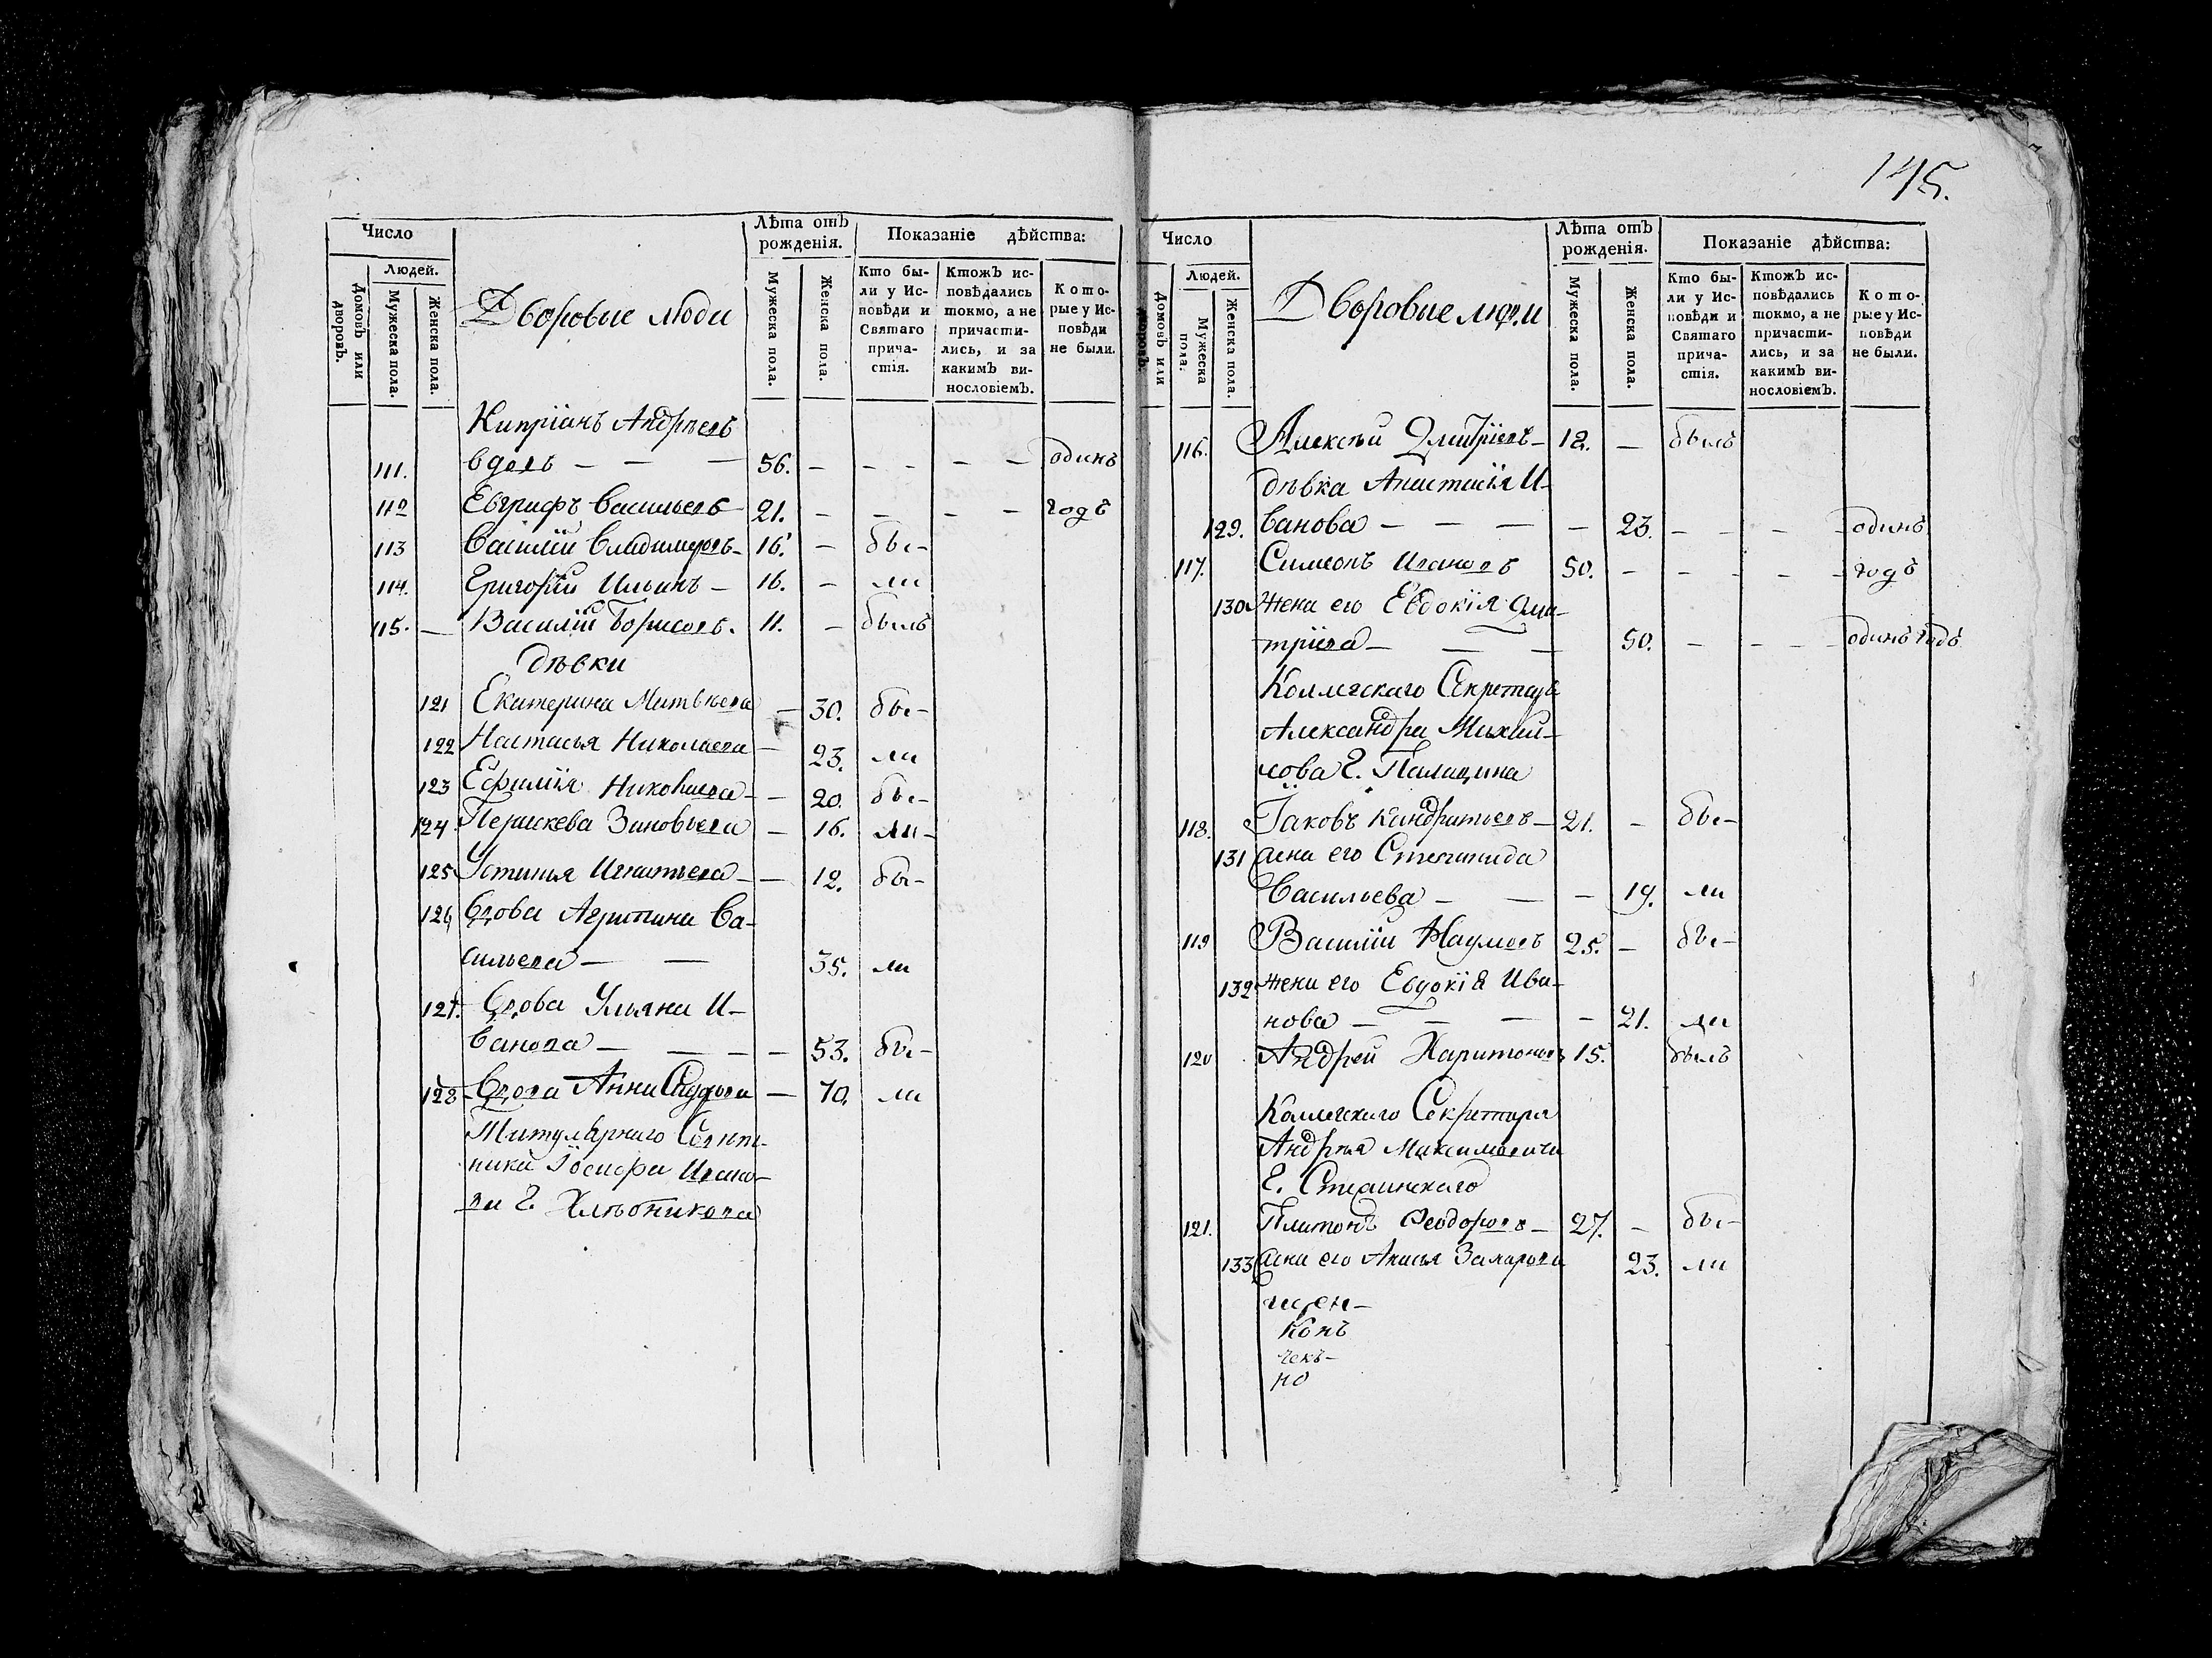 145.
Число
Лѣта отъ рожденія.
Показаніе дѣйства:
Людей.
Домовъ или дворовъ.
Мужеска пола.
Женска пола.
Дворовые люди
Мужеска пола.
Женска пола.
Кто были у Исповѣди и Святаго причастія.
Ктожъ исповѣдались токмо, а не причастились, и за какимъ винословіемъ.
Которые у Исповѣди не были.
Кипріанъ Андреевъ
111. вдовъ — — — 56. — — — — — одинъ
112 Евграфъ Васильевъ 21. — — — — годъ
113 Василій Владимеровъ — 16. — бы-
114. Григорій Ильинъ — 16. — ли
115. — Василій Борисовъ. 11. — былъ
дѣвки
121 Екатерина Матвѣева — 30. бы-
122 Настасья Николаева — 23. ли
123 Ефимія Николаева — — 20. бы-
124 Параскева Зиновьева — 16. ли-
125 Устинья Игнатьева — — 12. бы-
126 Вдова Агрипина Ва-
сильева — — 35. ли
127. Вдова Ульяна И-
ванова — — — — 53. бы-
128 Вдова Анна — 70. ли
Титулярнаго Совѣт-
ника Іосифа Ивано-
ва Г. Хлѣбникова
Число
Лѣта отъ рожденія.
Показаніе дѣйства:
Людей.
Домовъ или дворовъ.
Мужеска пола.
Женска пола.
Дворовые люди
Мужеска пола.
Женска пола.
Кто были у Исповѣди и Святаго причастія.
Ктожъ исповѣдались токмо, а не причастились, и за какимъ винословіемъ.
Которые у Исповѣди не были.
116. Алексѣй Дмитріевъ — 12. — былъ
дѣвка Анастасія И-
129. ванова — — — — 23. — — — одинъ
117. Симеонъ Ивановъ 50. — — — — — годъ
130 жена его Евдокія Дми-
тріева — — — 50. — — — — одинъ годъ
Коллежскаго Секретаря
Александра Михай-
лова Г. Палицина
118. Іаковъ Кондратьевъ — 21. — бы-
131 жена его Степанида
Васильева — — — 19. ли
119 Василій Наумовъ 25. — бы-
132 жена его Евдокія Ива-
нова — — — — 21. ли
120 Андрей Харитоновъ 15. былъ
Коллежскаго Секретаря
Андрея Максимовича
Г.
121. Платонъ Феодоровъ — 27. — бы-
133 жена его Анисья Захарова 23. ли